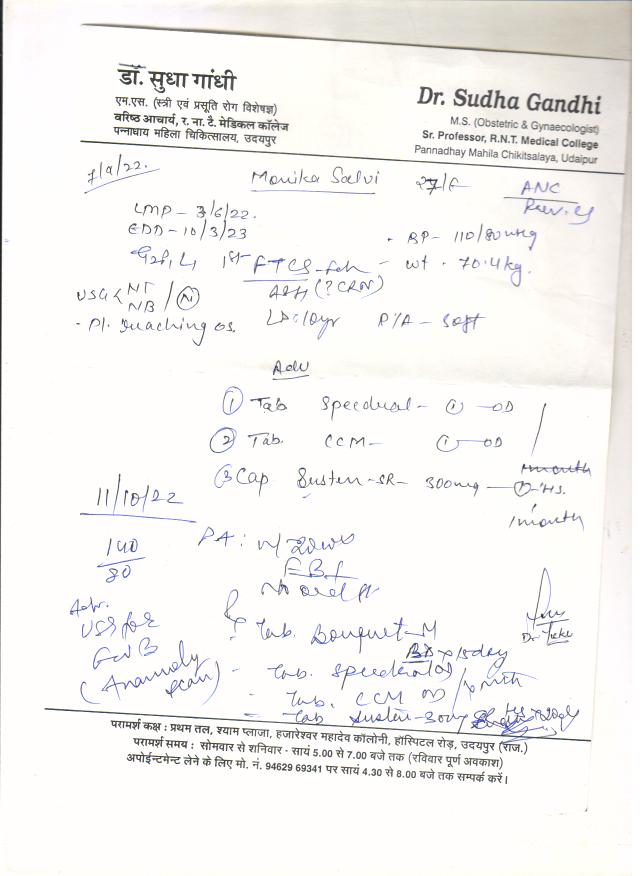 डॉ. सुधा गांधी
एम.एस. (स्त्री एवं प्रसूति रोग विशेषज्ञ)
वरिष्ठ आचार्य, र. ना. टै. मेडिकल कॉलेज
पन्नाधाय महिला चिकित्सालय, उदयपुर
Dr. Sudha Gandhi
M.S. (Obstetric & Gynaecologist)
Sr. Professor, R.N.T. Medical College
Pannadhay Mahila Chikitsalaya, Udaipur
7/9/22.
Monika Salvi
27/F
ANC
LMP - 3/6/22.
EDD - 10/3/23
BP - 110/80 mmHg
wt - 70.4 kg.
1st FTCS
USG < NT
NB
Pl. reaching os.
P/A - Soft
Adv
① Tab Speedual - ① - OD
② Tab. CCM - ① - OD
③ Cap Susten - SR - 300mg - ① - HS.
1 month
11/10/22
140
80
PA: 20 wks
Adv.
USG for
GWB
(Anamoly scan)
Tab. Bouquet-M
BD x 15 day
Tab. Speedual OD
Tab. CCM OD
Tab Susten - 300mg
परामर्श कक्ष : प्रथम तल, श्याम प्लाजा, हजारेश्वर महादेव कॉलोनी, हॉस्पिटल रोड़, उदयपुर (राज.)
परामर्श समय : सोमवार से शनिवार - सायं 5.00 से 7.00 बजे तक (रविवार पूर्ण अवकाश)
अपोईन्टमेन्ट लेने के लिए मो. नं. 94629 69341 पर सायं 4.30 से 8.00 बजे तक सम्पर्क करें।